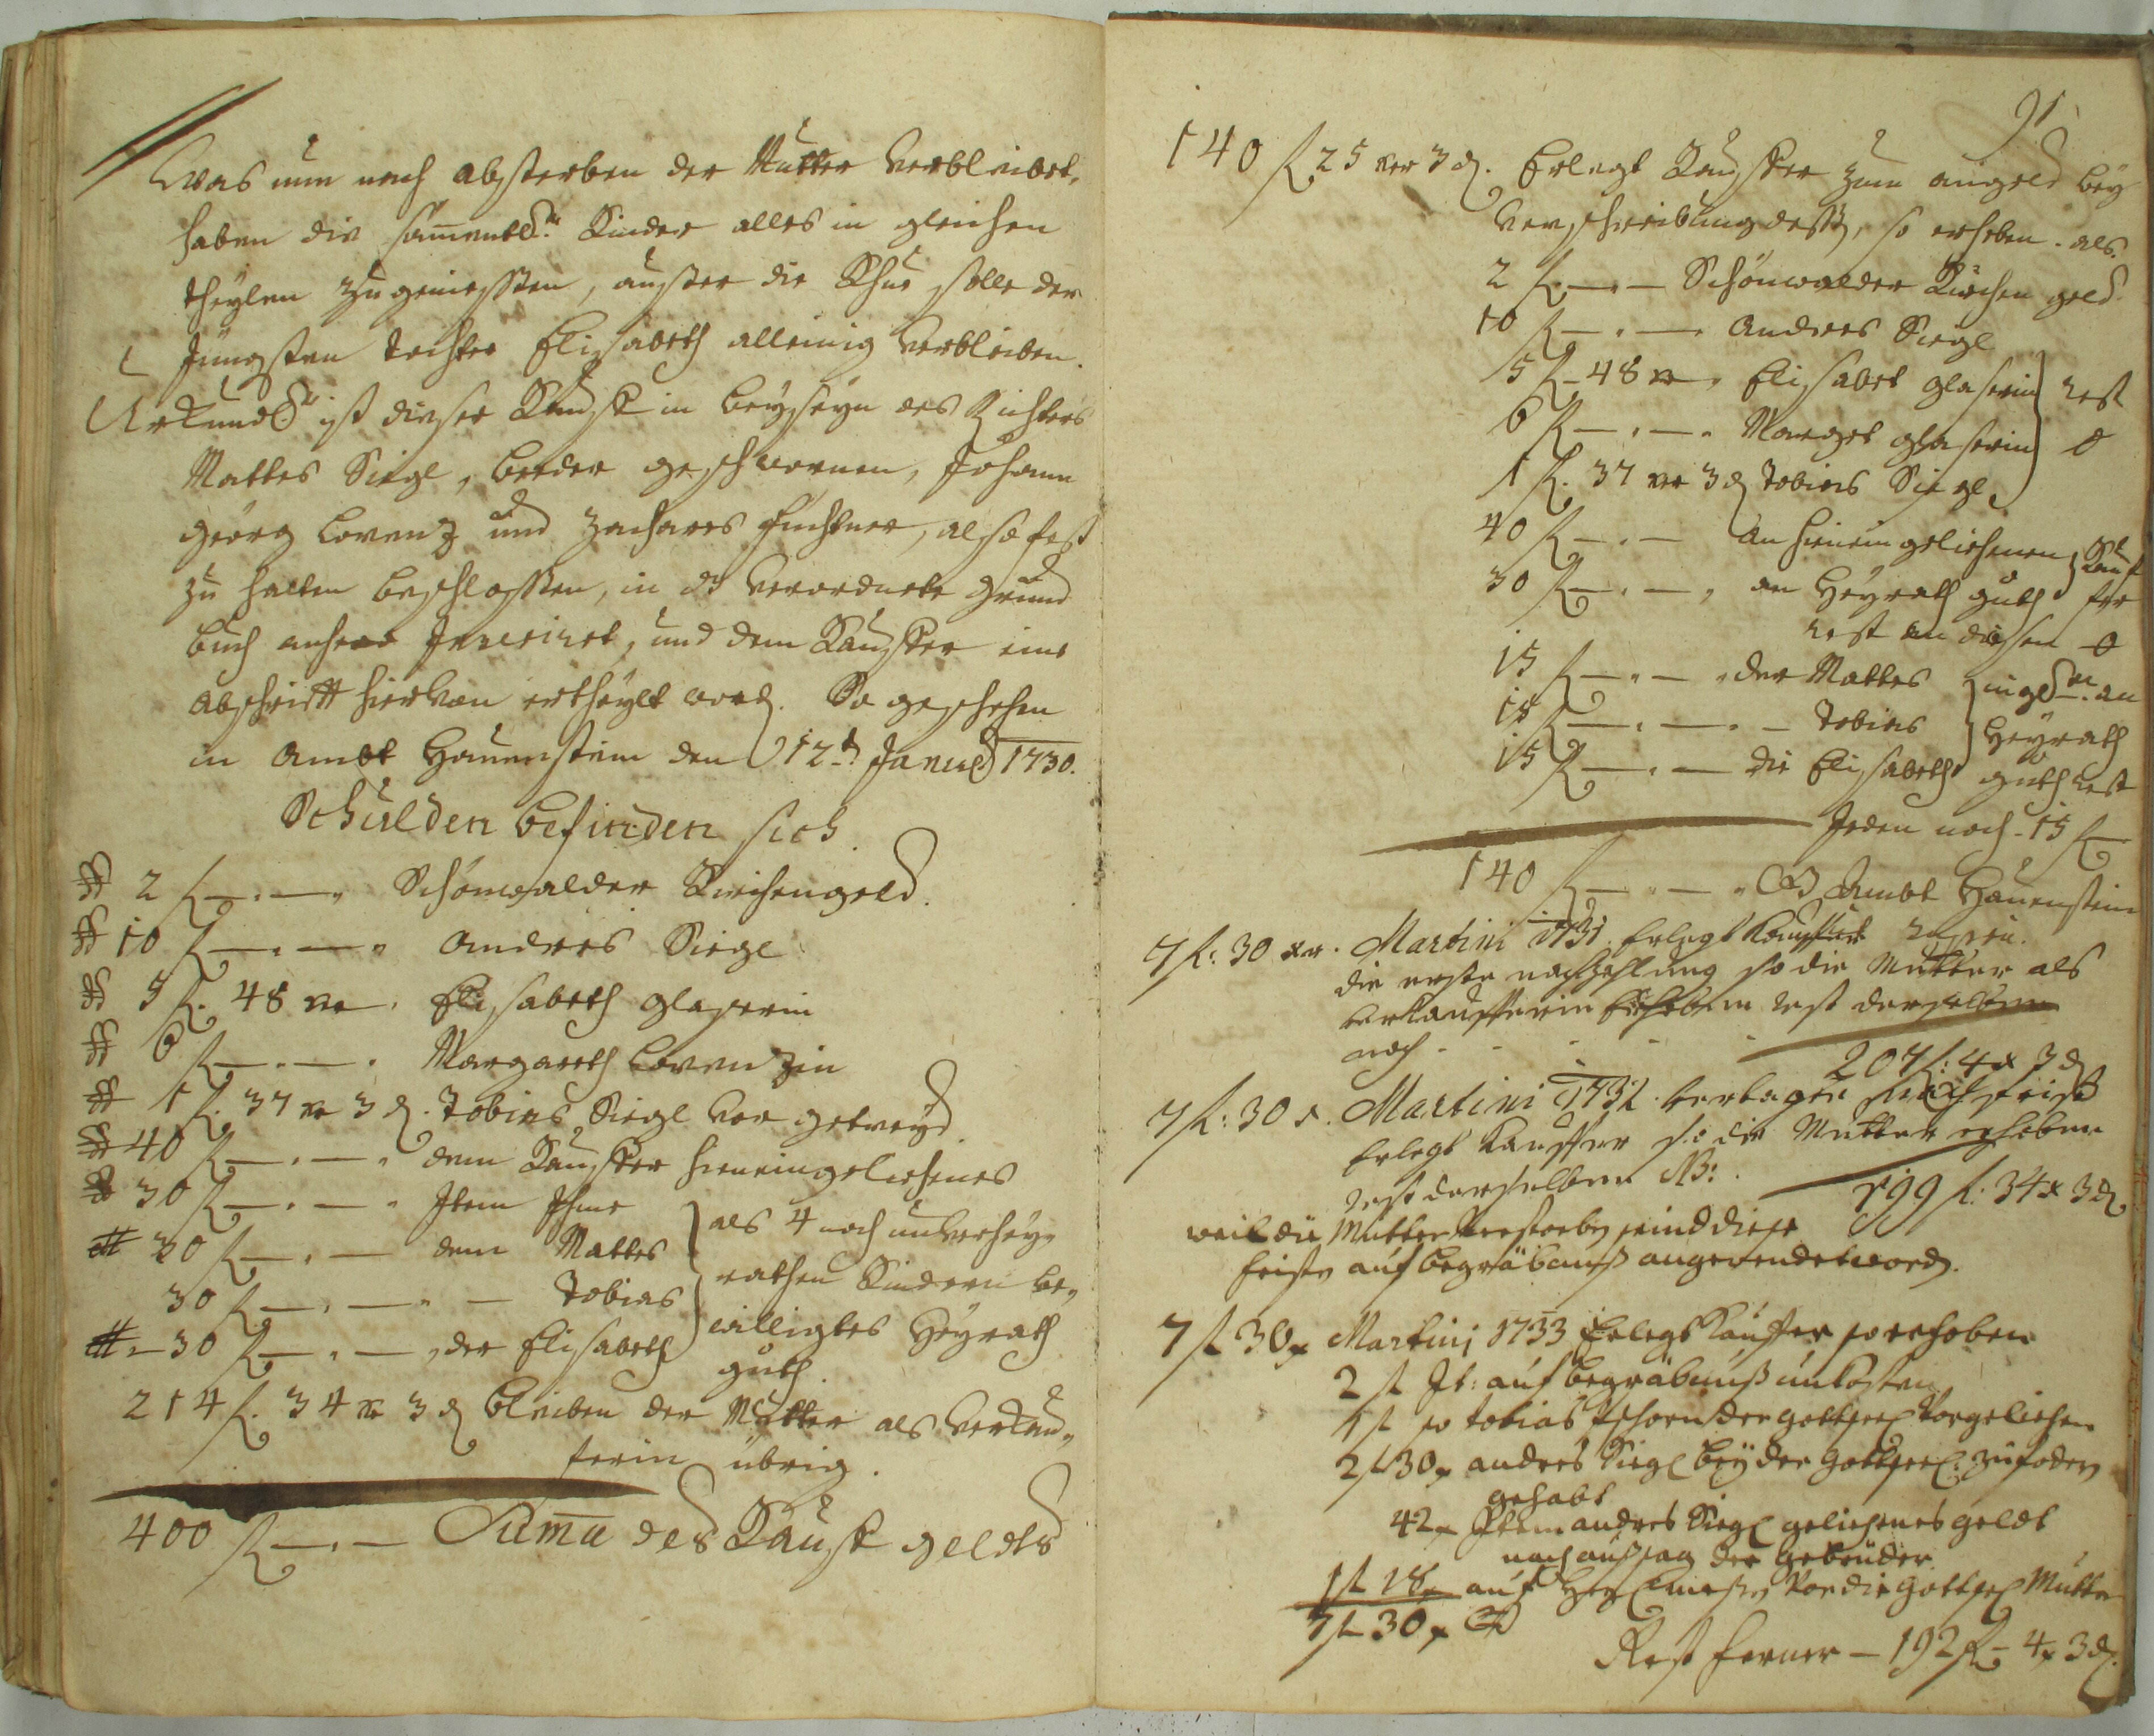 Was nun nach absterben der Mutter verbleibet,
haben die sammentl. Kinder alles in gleichen
theylen zu geniessen, ausser die Khue solle der
Jüngsten tochter Elisabeth alleinig verbleiben.
Urkundl. ist dieser Kauff in beyseyn des Richters
Mattes Siegl, beeder geschwornen, Johann
Georg Lorenz und Zacharis Fuchtner, also fest
zu halten beschlossen, in das verordnete Grund
buch anhero Inserirt, und dem Kauffer eine
abschrifft hiervon ertheylt word. So geschehen
in Ambt Hauenstein den 12t Januar 1730.
Schulden befinden sich.
2 f — . — . Schönwalder Kirchengeld.
10 f — . — . Andrees Siegl
5 f. 48 xr . Elisabeth Glaserin
6 f — . — . Margareth Lorenzin
1 f. 37 xr 3 d. Tobias Siegl vor getreyd
40 f — . — . dem Kauffer hineingelihenes
30 f — . — . Item Ihme
30 f — . — dem Mattes
30 f — . — . — Tobias
30 f — . — , der Elisabeth
als 4 noch unverhey-
rathen Kindern be-
willigtes Heyrath
guth.
214 f. 34 xr 3 d bleiben der Mutter als verkau-
ferin übrig.
400 f — . — Suma des Kauff geldts
91
140 f 25 xr 3 d. Erlegt Kauffer zum angeld bey
verschreibung dess, so erheben. als.
2 f. — . — Schönwalder Kirchen geld
10 f — . — . Andrees Siegl
5 f — 48 xr . Elisabet Glaserin
6 f — . — . Marget Glaserin
1 f. 37 xr 3 d Tobias Siegl
rest
0
40 f — . — an hineingelihenen
30 f — . — , an Heyrath guth
Kauf
fer
rest an diesen 0
15 f — . — . der Mattes
15 f — . — . — Tobias
15 f — . — die Elisabeth
ingl. an
Heyrath
guth rest
Jeden noch . 15 f
140 f — . — . Ambt Hauenstein
7 f: 30 xr. Martini 1731. Erlegt Kauffer
die erste nachzahlung so die Mutter als
verkaufferin erhoben rest derselben
noch - - - -
207 f: 4 x 3 d
7 f: 30 x. Martini 1732. vertagte frist
Erlegt Kauffer so die Mutter erhoben
rest derselben NB:.
199 f: 34 x 3 d
weil die Mutter verstorben seind diese
fristen auf begräbnuß angewendet word.
7 f 30 x Martini 1733 Erlegt Kauffer so erhoben
2 f It: auf begräbnuß unkosten
1 f so Tobias der Gottseel. vorgeliehen
2 f 30 x andres Siegl bey der Gottseel. zu fodern
gehabt
42 x Item andres Siegl geliehenes geldt
nach aussag der gebrüder
1 f 18 x auf Messen vor die Gottseel Mutter
7 f 30 x
Rest ferner — 192 f — 4 x 3 d.